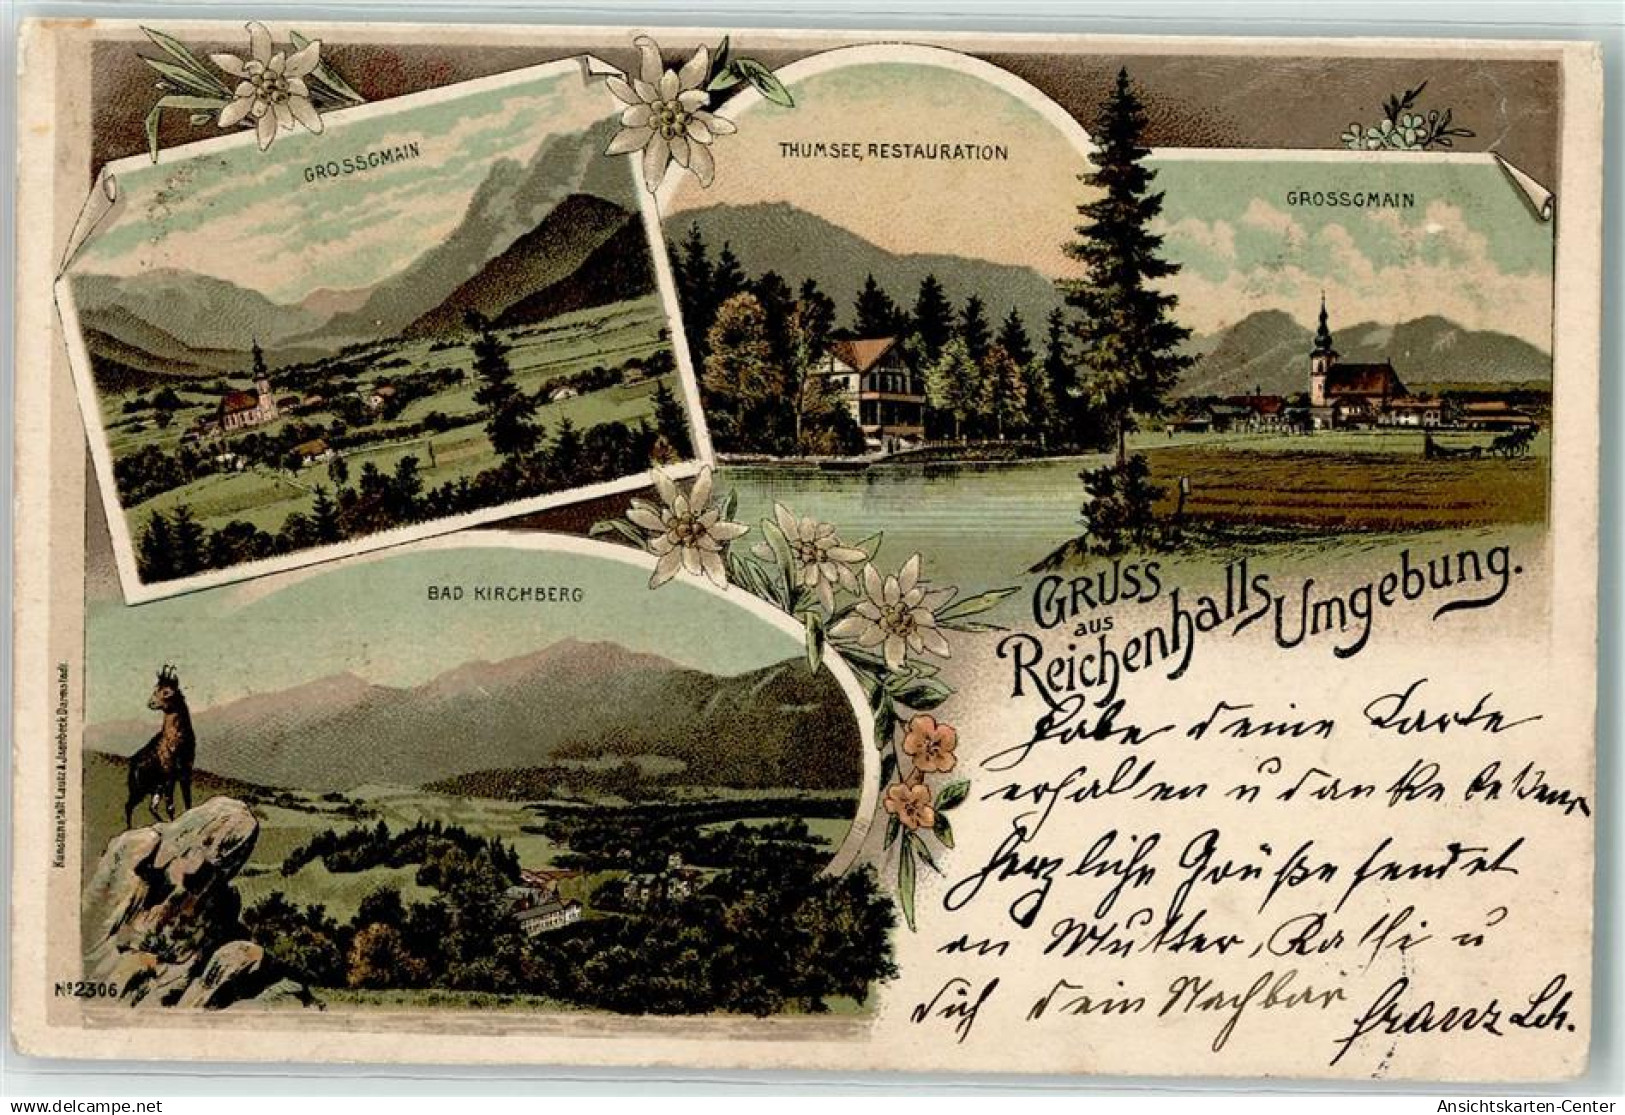 GROSSGMAIN
THUMSEE, RESTAURATION
GROSSGMAIN
BAD KIRCHBERG
GRUSS
aus
Reichenhalls Umgebung.
Habe deine Karte
erhalten u danke bestens
Herzliche Grüße sendet
an Mutter, Kathi u
dich dein Nachbar
Franz Sch.
Kunstanstalt Lautz & Jsenbeck, Darmstadt.
No 2306
delcampe.net
Ansichtskarten-Center